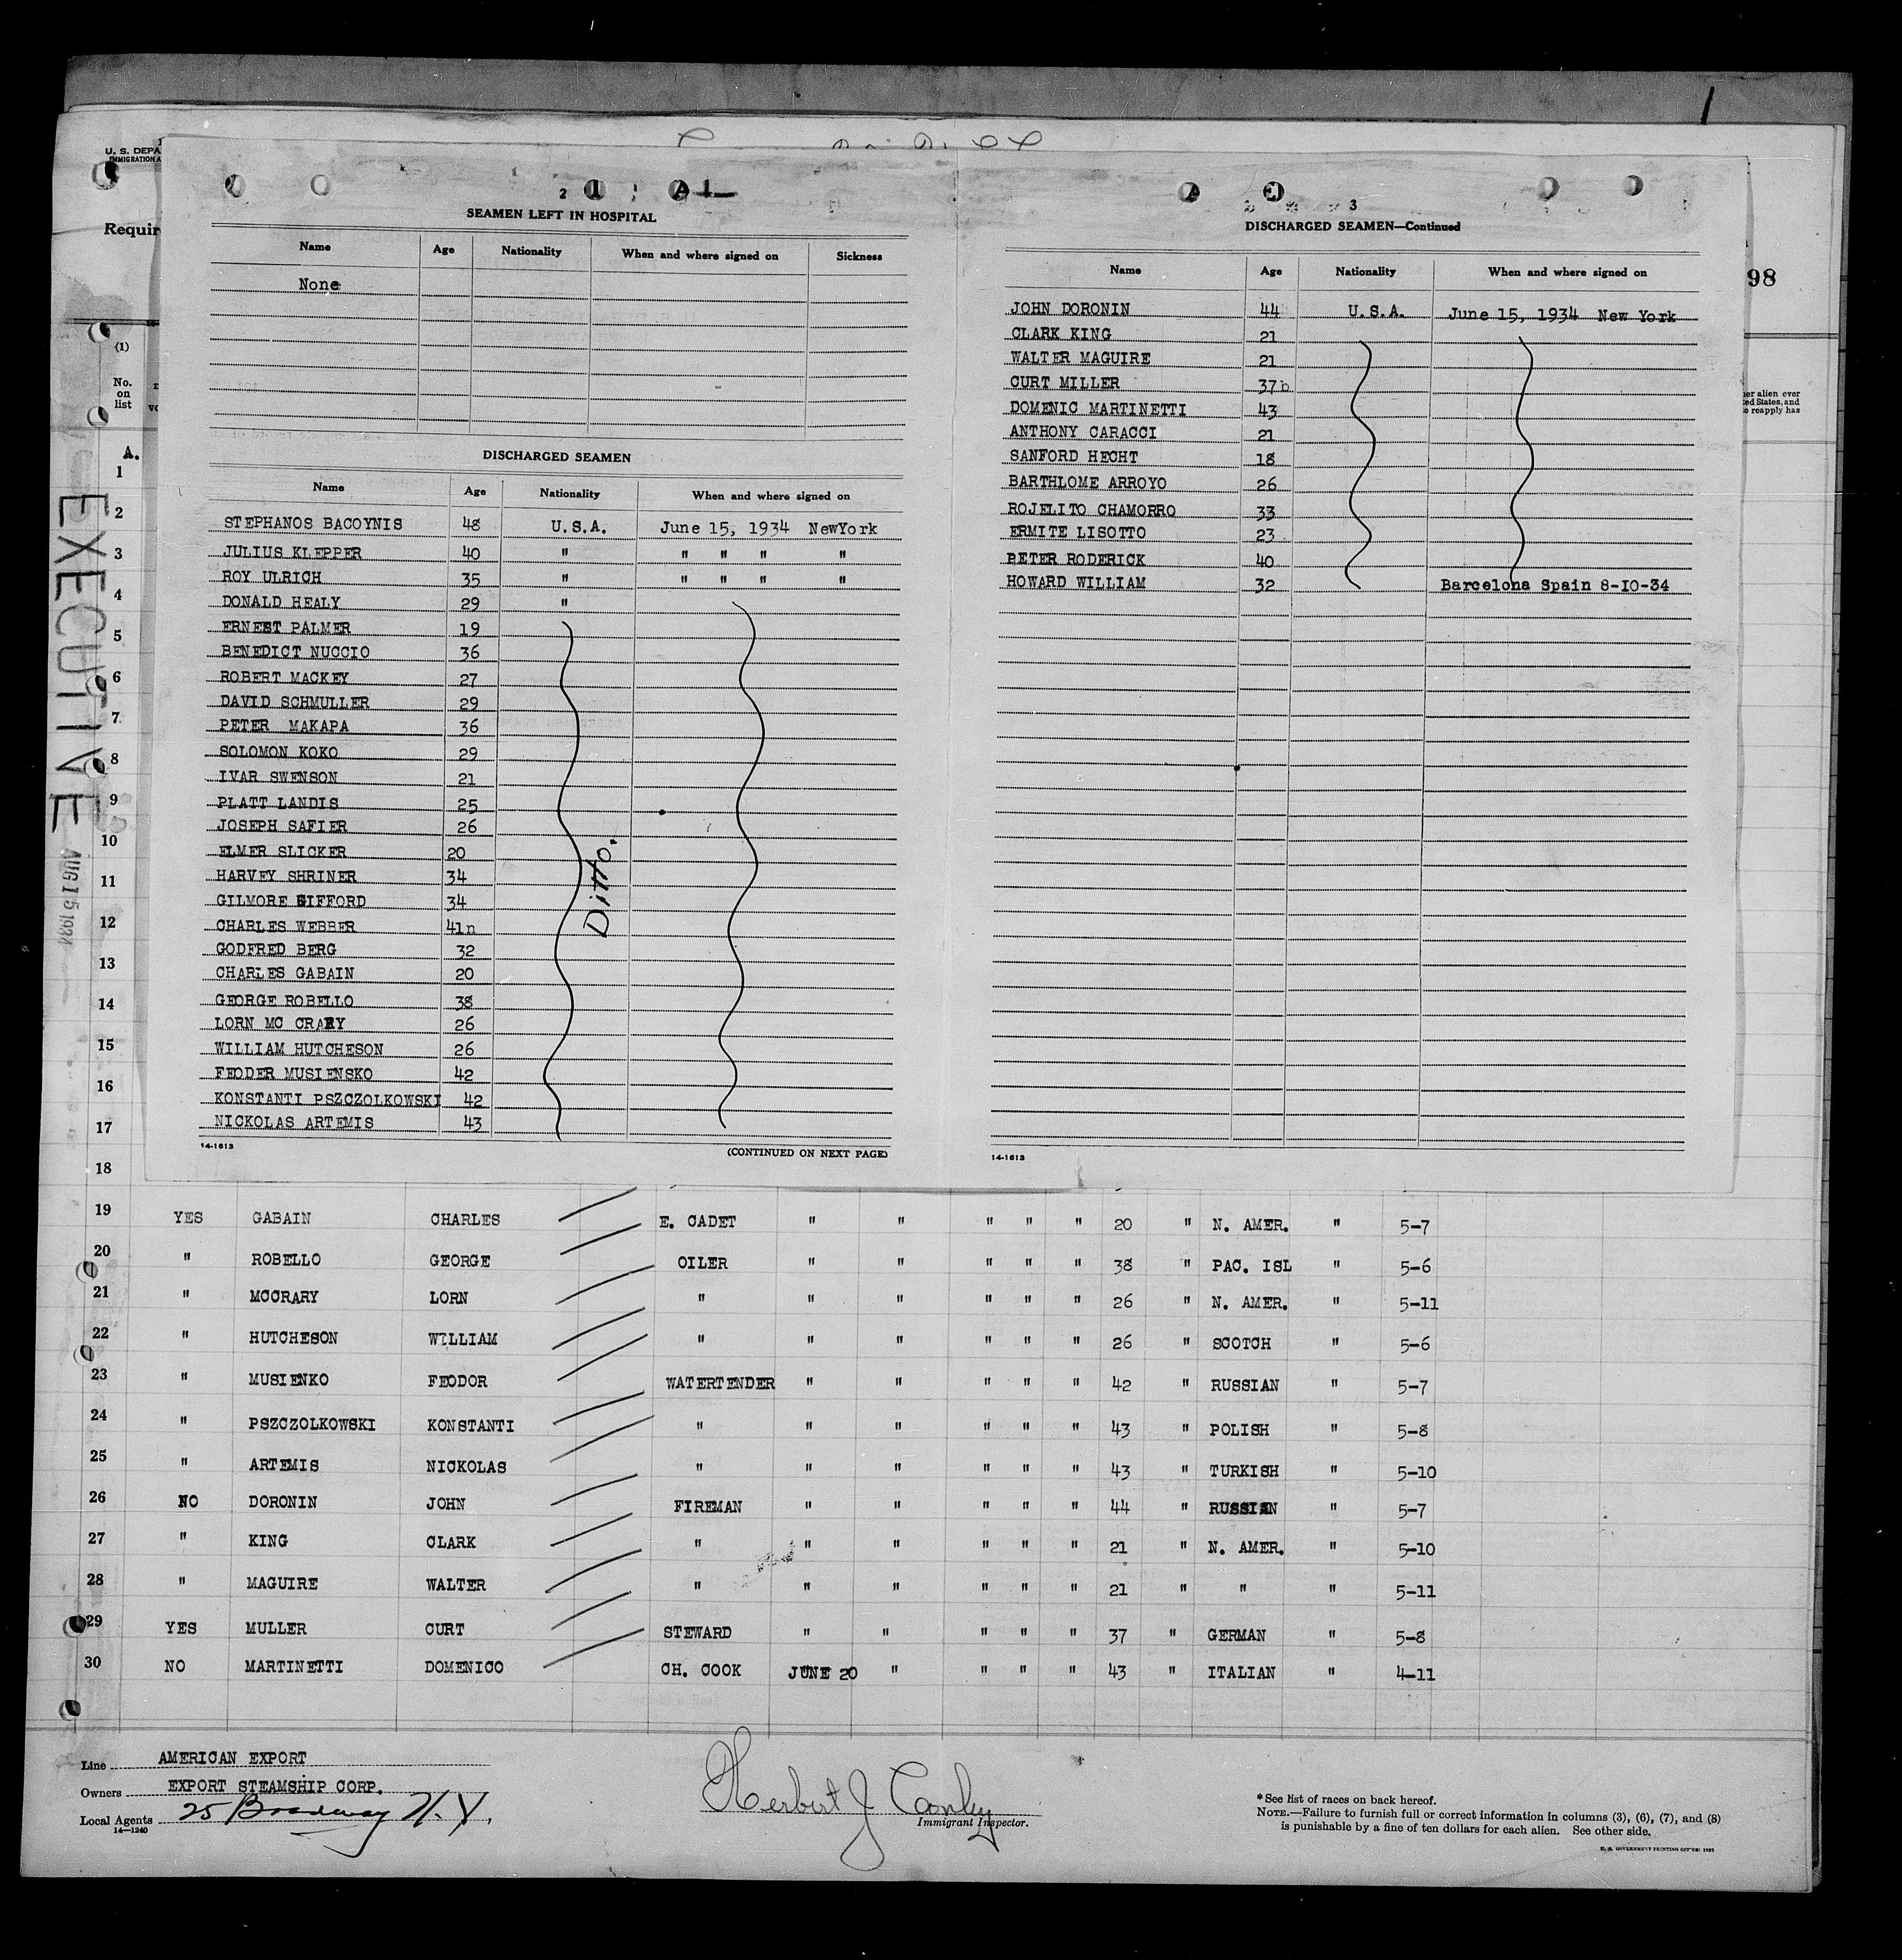 U. S. DEPA
IMMIGRATION A
Requir
98
(1)
No.
on
list
er alien ever
ed States, and
o reapply has
A.
EXECUTIVE
AUG 15 1934
2
SEAMEN LEFT IN HOSPITAL
Name Age Nationality When and where signed on Sickness
None
DISCHARGED SEAMEN
Name Age Nationality When and where signed on
STEPHANOS BACOYNIS 48 U.S.A. June 15, 1934 NewYork
JULIUS KLEPPER 40 " " " " "
ROY ULRICH 35 " " " " "
DONALD HEALY 29 "
ERNEST PALMER 19
BENEDICT NUCCIO 36
ROBERT MACKEY 27
DAVID SCHMULLER 29
PETER MAKAPA 36
SOLOMON KOKO 29
IVAR SWENSON 21
PLATT LANDIS 25
JOSEPH SAFIER 26
ELMER SLICKER 20
HARVEY SHRINER 34
GILMORE GIFFORD 34
CHARLES WEBBER 41n
GODFRED BERG 32
CHARLES GABAIN 20
GEORGE ROBELLO 38
LORN MC CRARY 26
WILLIAM HUTCHESON 26
FEODER MUSIENSKO 42
KONSTANTI PSZCZOLKOWSKI 42
NICKOLAS ARTEMIS 43
Ditto.
14-1613
(CONTINUED ON NEXT PAGE)
3
DISCHARGED SEAMEN—Continued
Name Age Nationality When and where signed on
JOHN DORONIN 44 U.S.A. June 15, 1934 New York
CLARK KING 21
WALTER MAGUIRE 21
CURT MILLER 37b
DOMENIC MARTINETTI 43
ANTHONY CARACCI 21
SANFORD HECHT 18
BARTHLOME ARROYO 26
ROJELITO CHAMORRO 33
ERMITE LISOTTO 23
PETER RODERICK 40
HOWARD WILLIAM 32 Barcelona Spain 8-10-34
14-1613
1
2
3
4
5
6
7
8
9
10
11
12
13
14
15
16
17
18
19 YES GABAIN CHARLES E. CADET " " " " " 20 " N. AMER. " 5-7
20 " ROBELLO GEORGE OILER " " " " " 38 " PAC. ISL " 5-6
21 " MCCRARY LORN " " " " " " 26 " N. AMER. " 5-11
22 " HUTCHESON WILLIAM " " " " " " 26 " SCOTCH " 5-6
23 " MUSIENKO FEODOR WATERTENDER " " " " " 42 " RUSSIAN " 5-7
24 " PSZCZOLKOWSKI KONSTANTI " " " " " " 43 " POLISH " 5-8
25 " ARTEMIS NICKOLAS " " " " " " 43 " TURKISH " 5-10
26 NO DORONIN JOHN FIREMAN " " " " " 44 " RUSSIAN " 5-7
27 " KING CLARK " " " " " " 21 " N. AMER. " 5-10
28 " MAGUIRE WALTER " " " " " " 21 " " " 5-11
29 YES MULLER CURT STEWARD " " " " " 37 " GERMAN " 5-8
30 NO MARTINETTI DOMENICO CH. COOK JUNE 20 " " " " 43 " ITALIAN " 4-11
Line AMERICAN EXPORT
Owners EXPORT STEAMSHIP CORP.
Local Agents 25 Broadway N.Y.
14-1240
Herbert J Conley
Immigrant Inspector.
*See list of races on back hereof.
NOTE.—Failure to furnish full or correct information in columns (3), (6), (7), and (8)
is punishable by a fine of ten dollars for each alien. See other side.
U. S. GOVERNMENT PRINTING OFFICE: